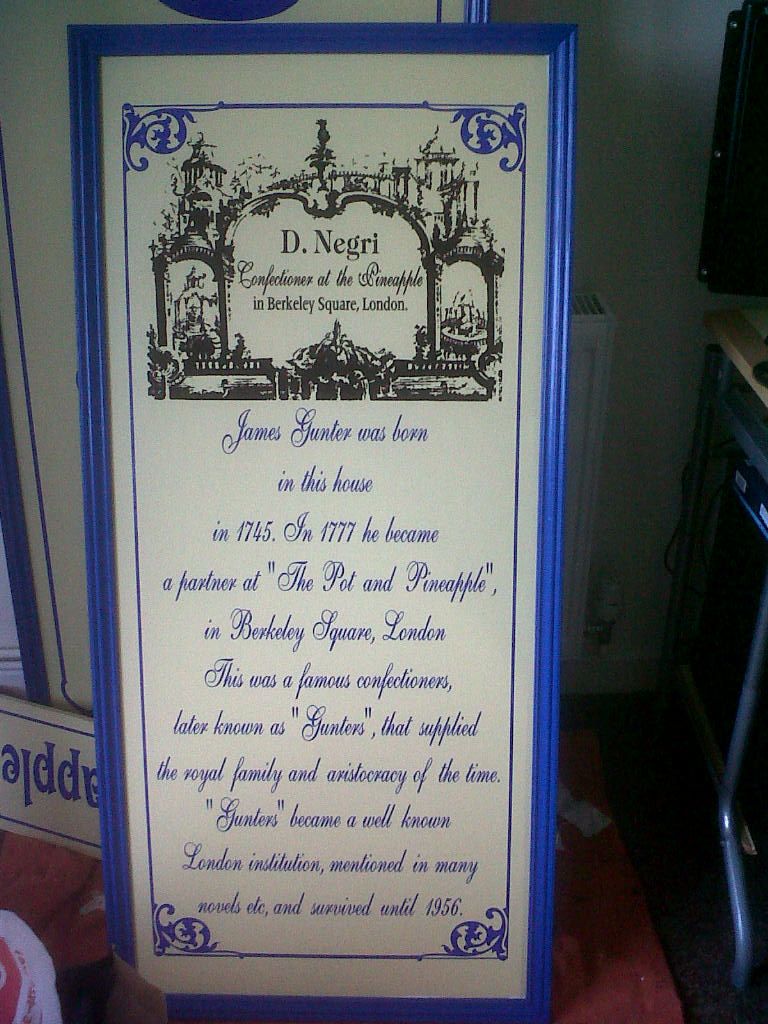 D. Negri
Confectioner at the Pineapple
in Berkeley Square, London.
James Gunter was born
in this house
in 1745. In 1777 he became
a partner at "The Pot and Pineapple",
in Berkeley Square, London
This was a famous confectioners,
later known as "Gunters", that supplied
the royal family and aristocracy of the time.
"Gunters" became a well known
London institution, mentioned in many
novels etc, and survived until 1956.
apple